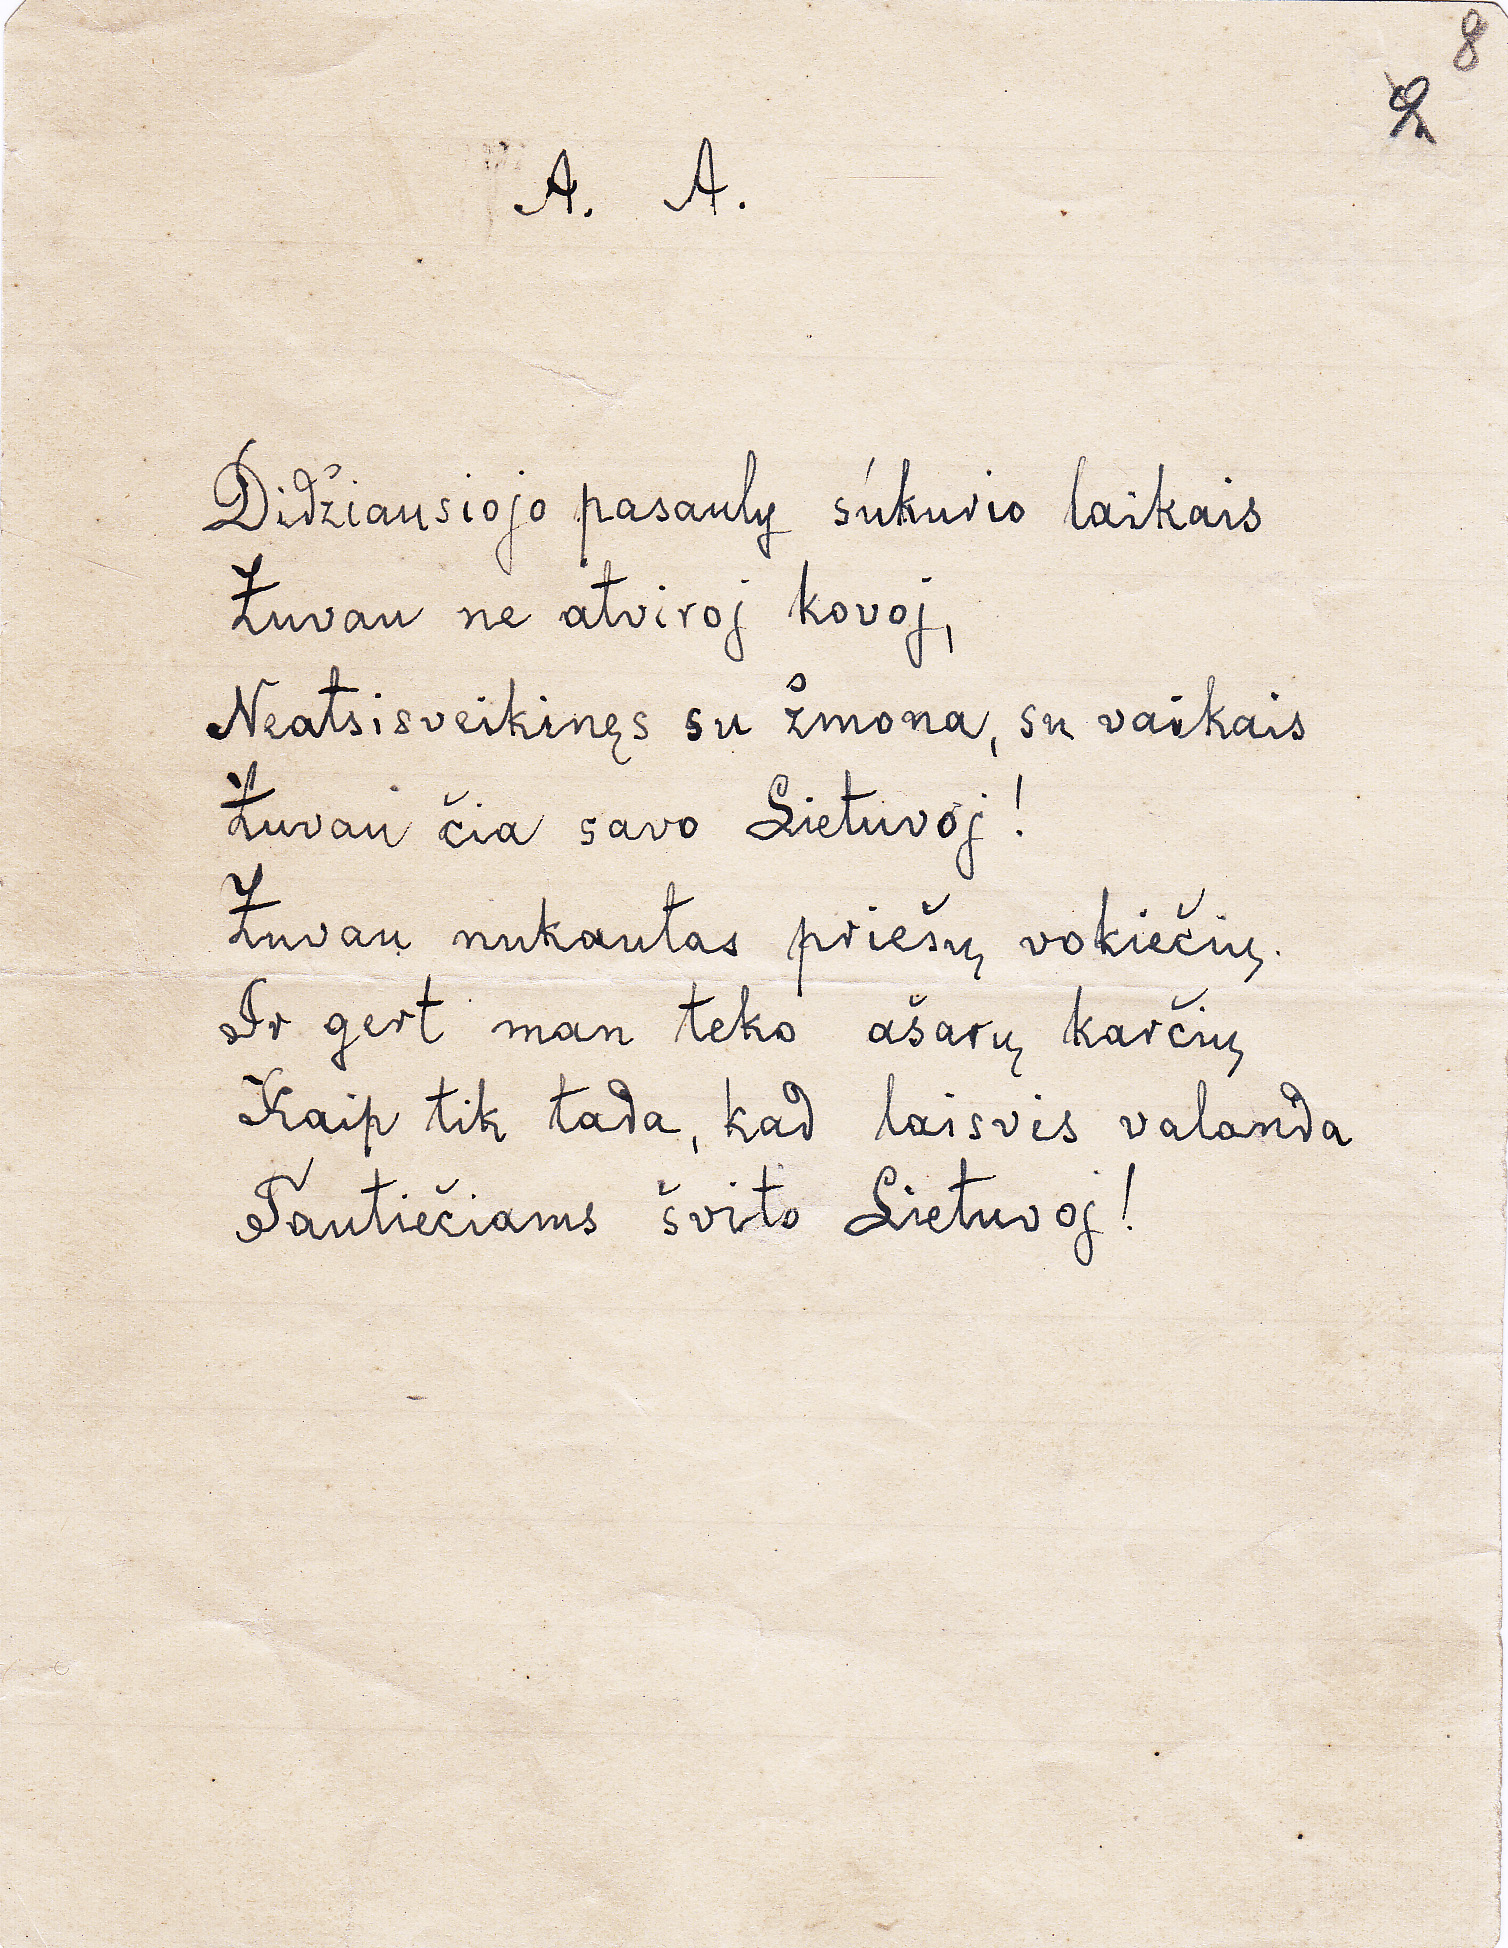 8
A. A.
Didžiausiojo pasauly súkurio laikais
Žuvau ne atviroj kovoj,
Neatsisveikinęs su žmona, su vaikais
Žuvau čia savo Lietuvoj!
Žuvau nukautas priešų vokiečių.
Ir gert man teko ašarų karčių
Kaip tik tada, kad laisvės valanda
Tautiečiams švito Lietuvoj!